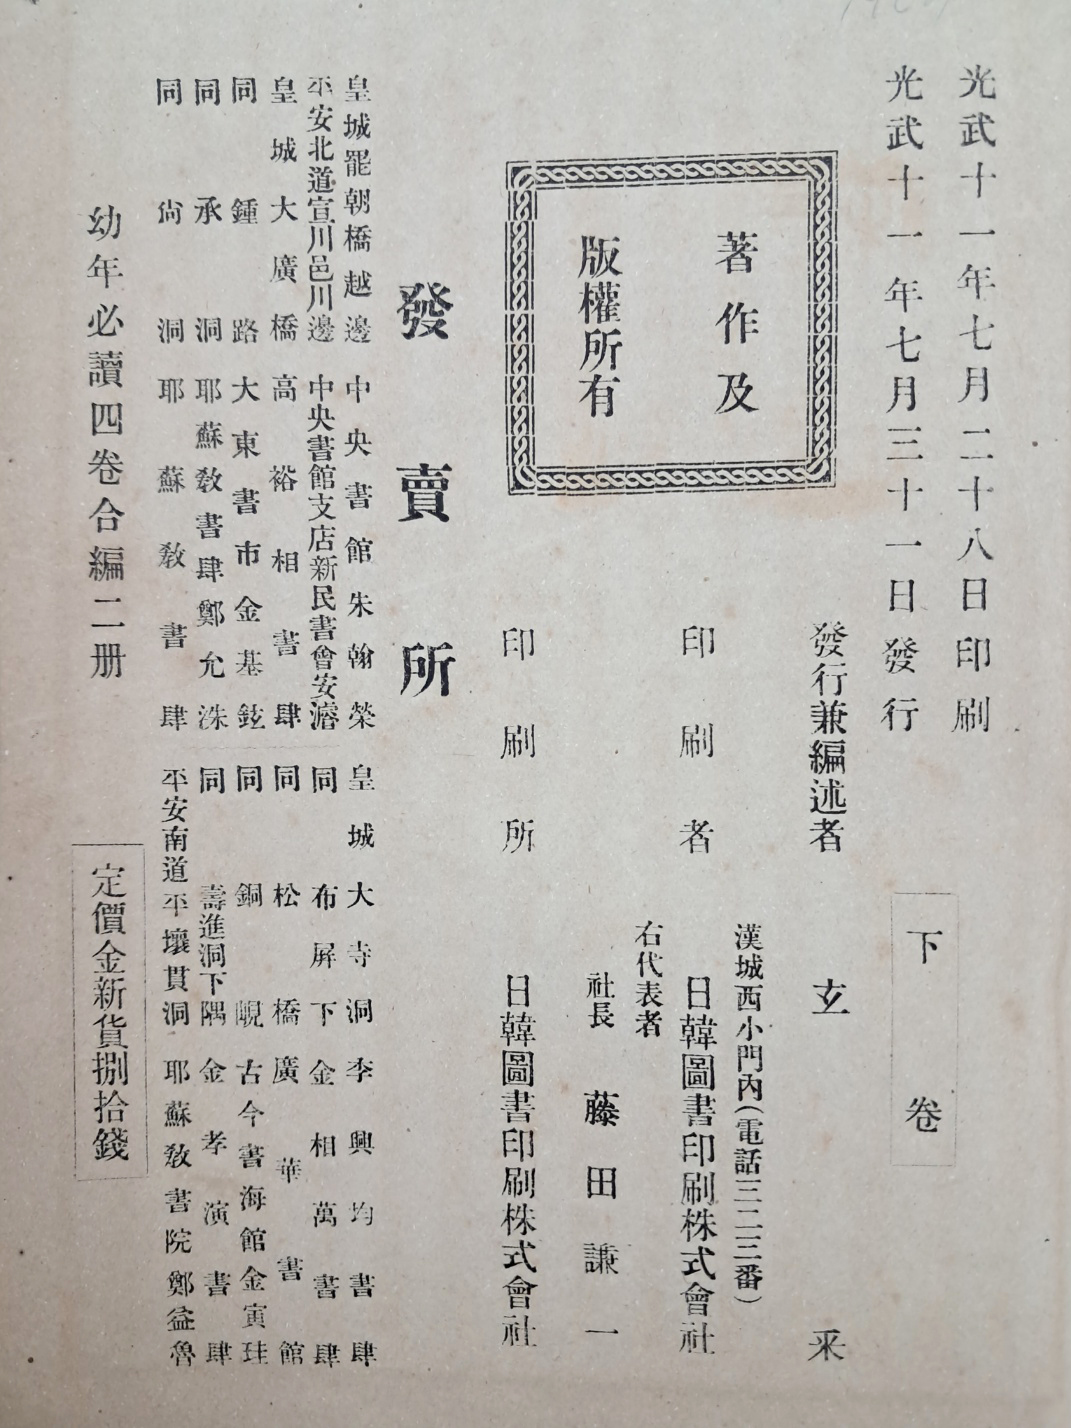 光武十一年七月二十八日印刷
光武十一年七月三十一日發行
下卷
著作及
版權所有
發行兼編述者 玄采
漢城西小門內(電話三二三番)
印刷者 日韓圖書印刷株式會社
右代表者
社長 藤田謙一
印刷所 日韓圖書印刷株式會社
發賣所
皇城罷朝橋越邊 中央書館朱翰榮
平安北道宣川邑川邊 中央書館支店新民書會安濬
皇城大廣橋 高裕相書肆
同鍾路 大東書市金基鉉
同承洞 耶蘇敎書肆鄭允洙
同尙洞 耶蘇敎書肆
皇城大寺洞 李興均書肆
同布屛下 金相萬書肆
同松橋 廣華書館
同銅峴 古今書海館金寅珪
同壽進洞下隅 金孝演書肆
平安南道平壤貫洞 耶蘇敎書院鄭益魯
幼年必讀四卷合編二册
定價金新貨捌拾錢